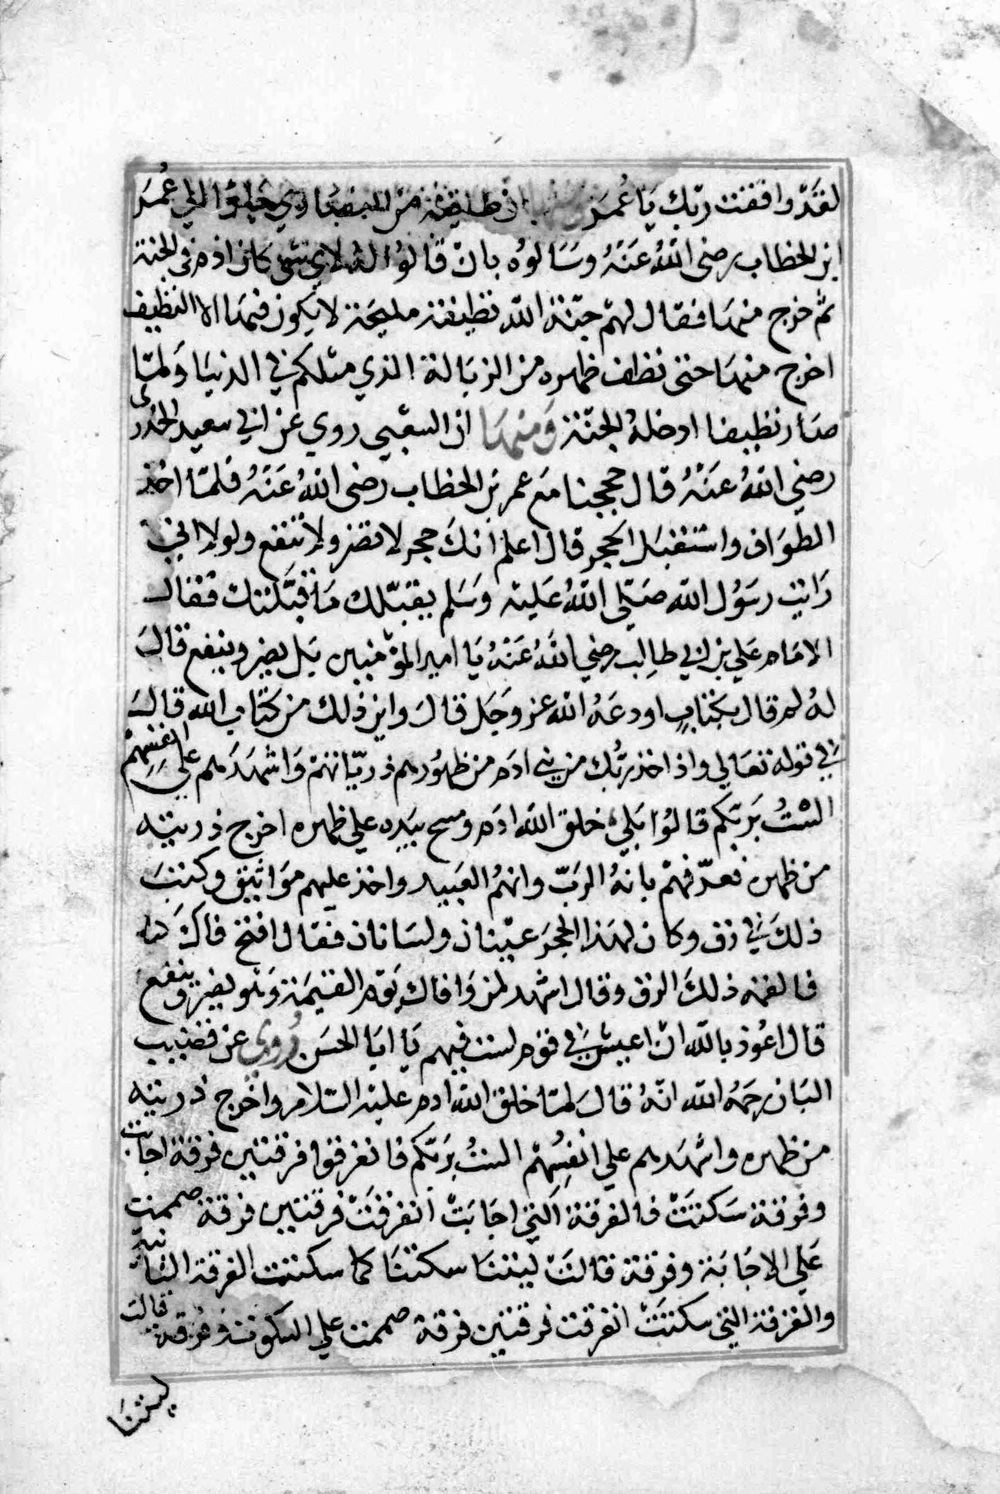 لقد وافقت ربك يا عمر ان طايفة من النصاري جاوا الي عمر
ابن الخطاب رضي الله عنه وسالوه بان قالوا له لاي شي كان ادم في الجنة
ثم خرج منها فقال لهم جنة الله نظيفة مليحة لا يكون فيها الا النظيف
اخرج منها حتي نظف ظهره من الزبالة الذي مثلكم في الدنيا ولما
صار نظيفا ادخله الجنة ومنها ان الشعبي روي عن ابي سعيد الخدري
رضي الله عنه قال حججنا مع عمر بن الخطاب رضي الله عنه فلما اخذ
الطواف واستقبل الحجر قال اعلم انك حجر لا تضر ولا تنفع ولولا اني
رايت رسول الله صلي الله عليه وسلم يقبلك ما قبلتك فقال
الامام علي بن ابي طالب رضي الله عنه يا امير المؤمنين بل يضر وينفع قال
له لم قال بكتاب اودعه الله عز وجل قال واين ذلك من كتاب الله قال
في قوله تعالي واذ اخذ ربك من بني ادم من ظهورهم ذرياتهم واشهدهم علي انفسهم
الست بربكم قالوا بلي خلق الله ادم ومسح بيده علي ظهره اخرج ذريته
من ظهره فعرفهم بانه الرب وانهم العبيد واخذ عليهم مواثيق وكتب
ذلك في رق وكان لهذا الحجر عينان ولسانان فقال افتح فاك
فالقمه ذلك الرق وقال اشهد لمن وافاك يوم القيمة وهو يضر وينفع
قال اعوذ بالله ان اعيش في قوم لست فيهم يا ابا الحسن وروي عن قضيب
البان رحمه الله انه قال لما خلق الله ادم عليه السلام واخرج ذريته
من ظهره واشهدهم علي انفسهم الست بربكم فانفرقوا فرقتين فرقة اجابت
وفرقة سكتت فالفرقة التي اجابت انفرقت فرقتين فرقة صممت
علي الاجابة وفرقة قالت ليتنا سكتنا كما سكتت الفرقة الثانية
والفرقة التي سكتت انفرقت فرقتين فرقة صممت علي السكوت وفرقة قالت
ليتنا